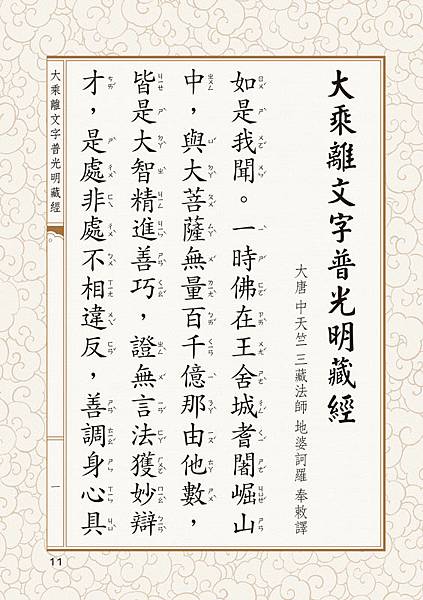 大乘離文字普光明藏經
大唐 中天竺 三藏法師 地婆訶羅 奉敕譯
如是我聞。一時佛在王舍城耆闍崛山
中，與大菩薩無量百千億那由他數，
皆是大智精進善巧，證無言法獲妙辯
才，是處非處不相違反，善調身心具
大乘離文字普光明藏經
一
11